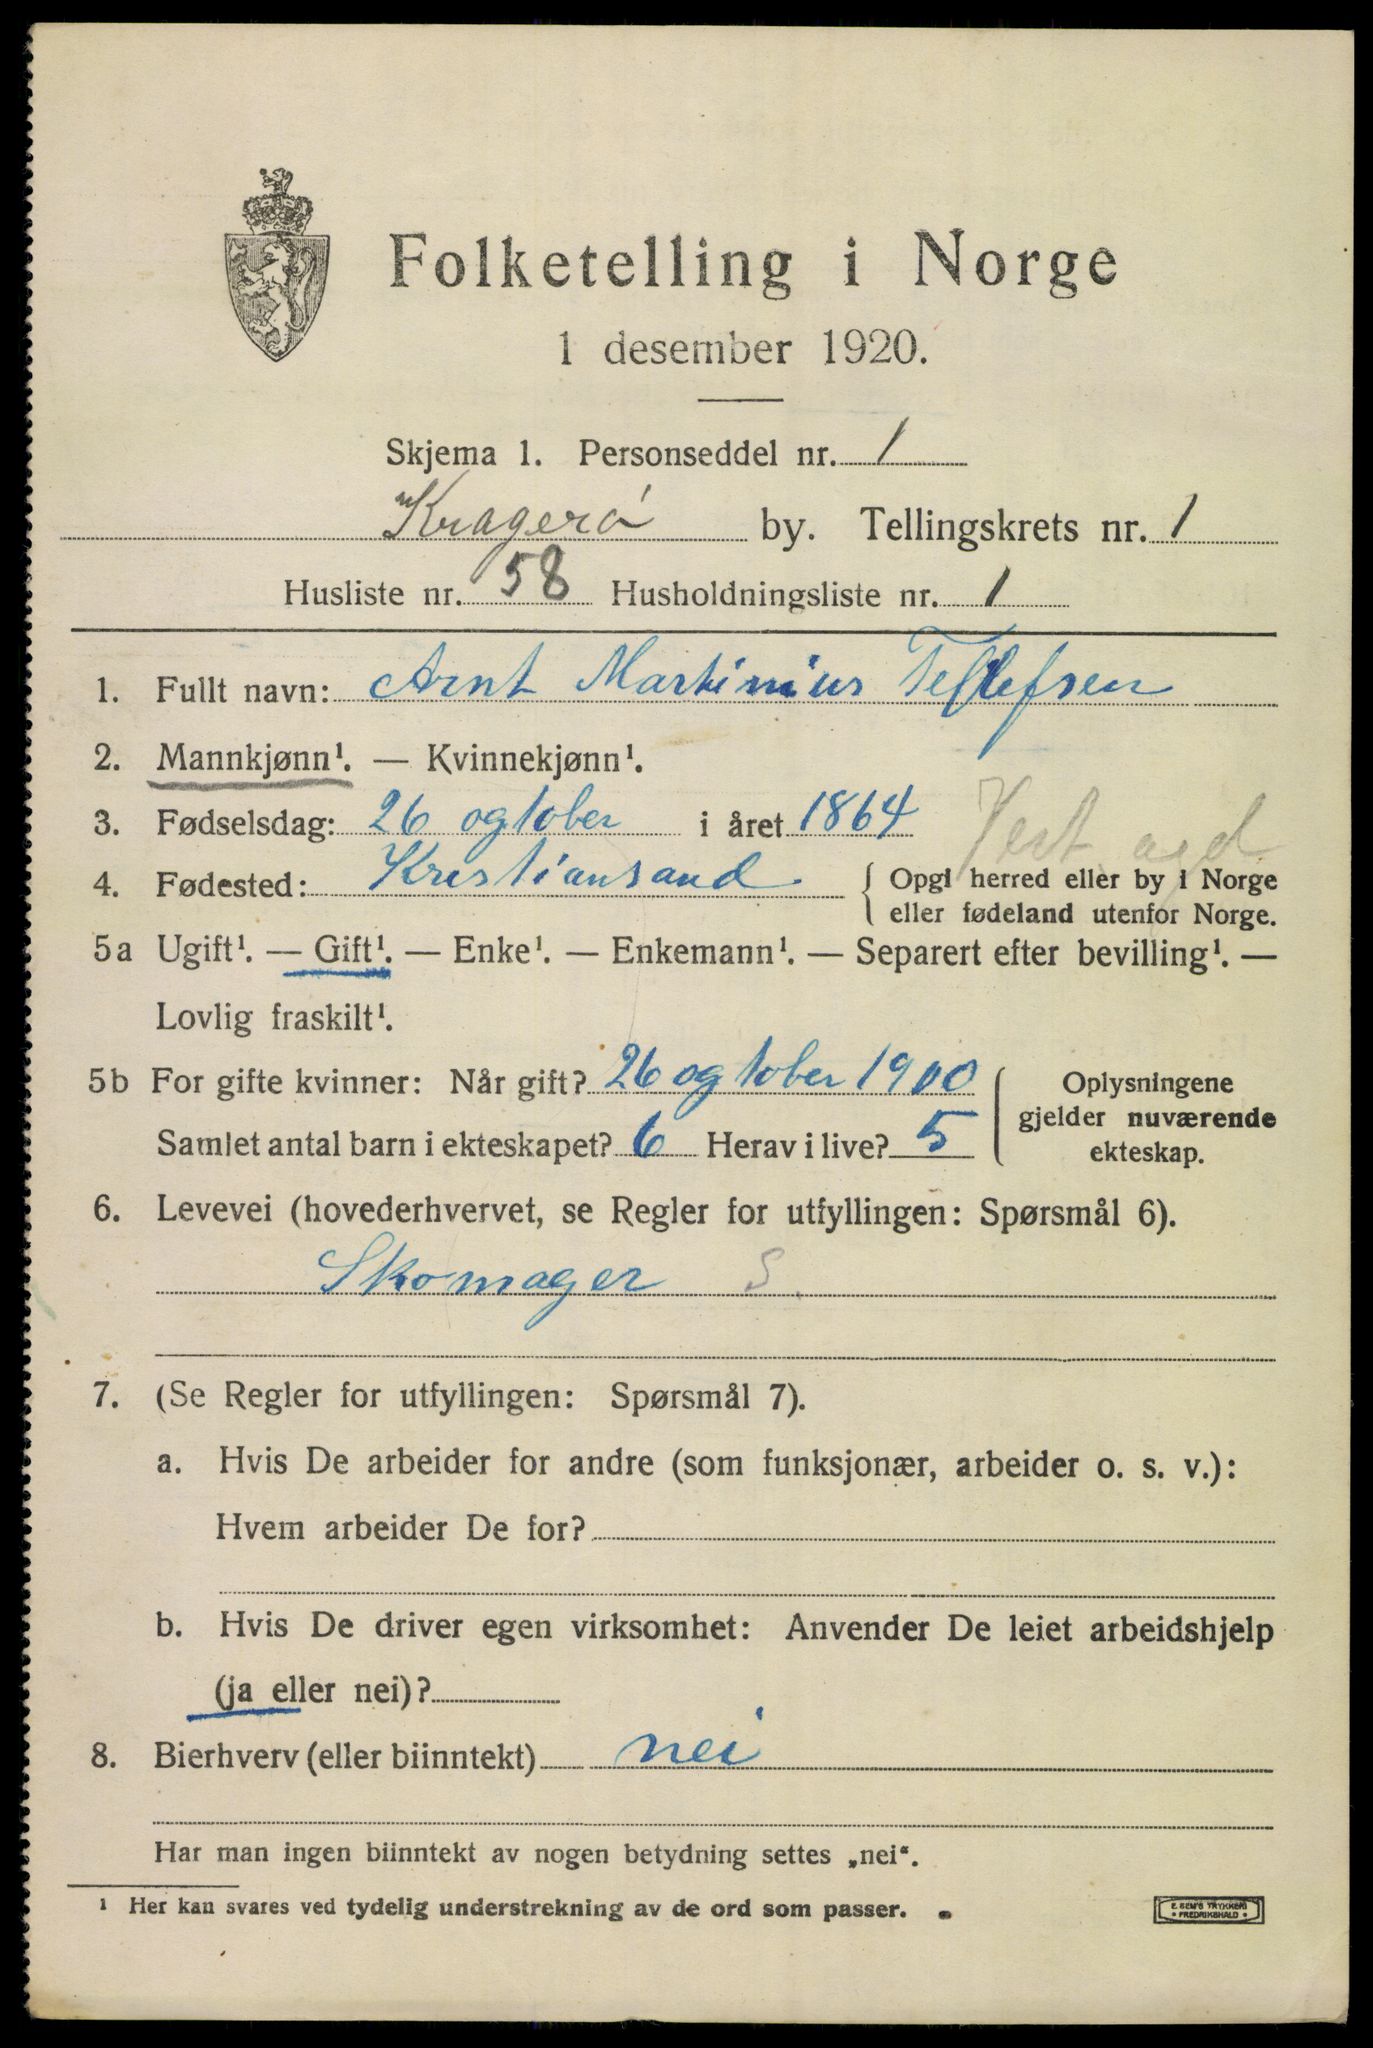 Folketelling i Norge
1 desember 1920.
Skjema 1. Personseddel nr. 1
Kragerö by. Tellingskrets nr. 1
Husliste nr. 58 Husholdningsliste nr. 1
1. Fullt navn: Arnt Martinius Tellefsen
2. Mannkjønn¹. — Kvinnekjønn¹.
3. Fødselsdag: 26 ogtober i året 1864
Vest agd
4. Fødested: Kristiansand { Opgi herred eller by i Norge
eller fødeland utenfor Norge.
5a Ugift¹. — Gift¹. — Enke¹. — Enkemann¹. — Separert efter bevilling¹. —
Lovlig fraskilt¹.
5b For gifte kvinner: Når gift? 26 ogtober 1900 ( Oplysningene
gjelder nuværende
Samlet antal barn i ekteskapet? 6 Herav i live? 5 ekteskap.
6. Levevei (hovederhvervet, se Regler for utfyllingen: Spørsmål 6).
Skomager S.
7. (Se Regler for utfyllingen: Spørsmål 7).
a. Hvis De arbeider for andre (som funksjonær, arbeider o. s. v.):
Hvem arbeider De for?
b. Hvis De driver egen virksomhet: Anvender De leiet arbeidshjelp
(ja eller nei)?
8. Bierhverv (eller biinntekt) nei
Har man ingen biinntekt av nogen betydning settes „nei“.
¹ Her kan svares ved tydelig understrekning av de ord som passer.
E. SEM'S TRYKKERI
• FREDRIKSHALD •